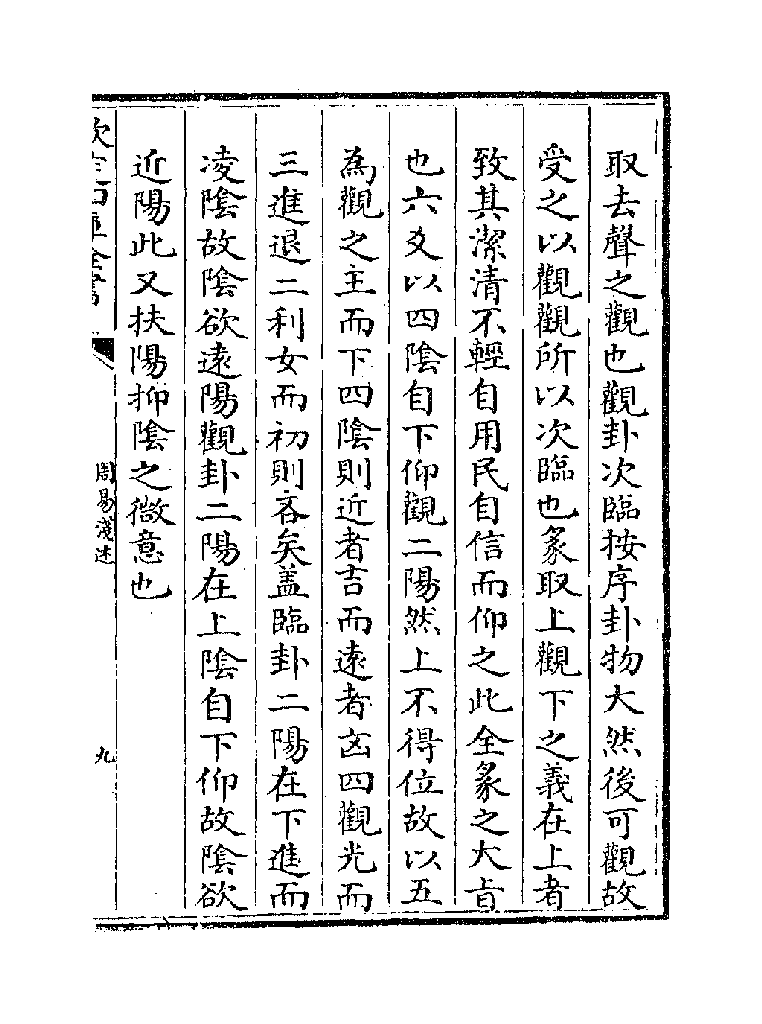 取去聲之觀也觀卦次臨按序卦物大然後可觀故
受之以觀觀所以次臨也彖取上觀下之義在上者
致其潔清不輕自用民自信而仰之此全彖之大㫖
也六爻以四陰自下仰觀二陽然上不得位故以五
為觀之主而下四陰則近者吉而遠者凶四觀光而
三進退二利女而初則吝矣盖臨卦二陽在下進而
凌陰故陰欲遠陽觀卦二陽在上陰自下仰故陰欲
近陽此又扶陽抑陰之微意也
欽定四庫全書
周易淺述
九